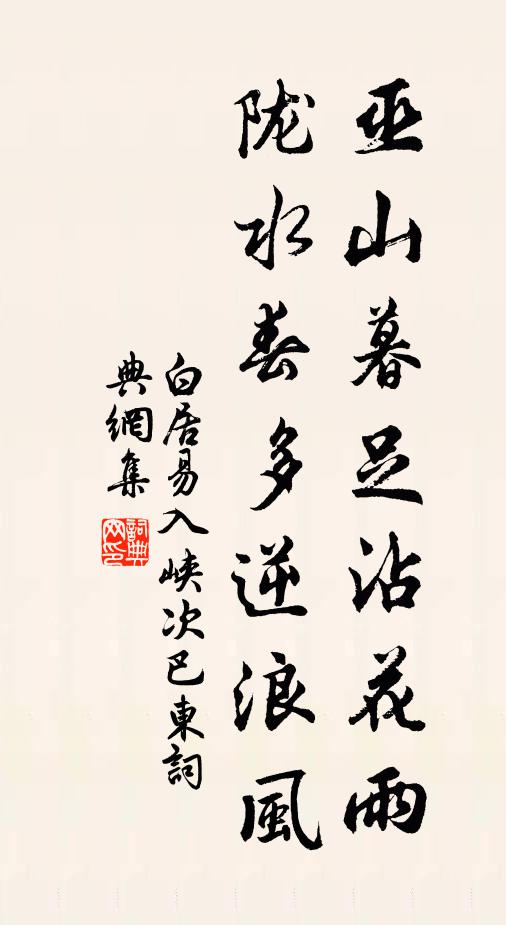 巫山暮足沾花雨
陇水春多逆浪風
白居易入峽次巴東詞
典網集
詞典網印